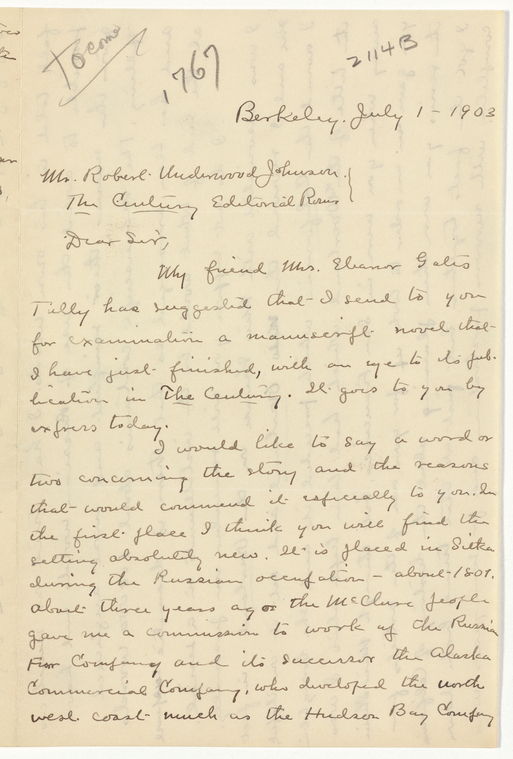 To come
1767
2114B
Berkeley. July 1 - 1903
Mr. Robert Underwood Johnson.
The Century Editorial Rooms
Dear Sir,
My friend Mrs. Eleanor Gates
Tully has suggested that I send to you
for examination a manuscript novel that
I have just finished, with an eye to its pub-
lication in The Century. It goes to you by
express today.
I would like to say a word or
two concerning the story and the reasons
that would commend it especially to you. In
the first place I think you will find the
setting absolutely new. It is placed in Sitka
during the Russian occupation – about 1801.
About three years ago the McClure people
gave me a commission to work up the Russian
Fur Company and its successor the Alaska
Commercial Company, who developed the north
west coast much as the Hudson Bay Company